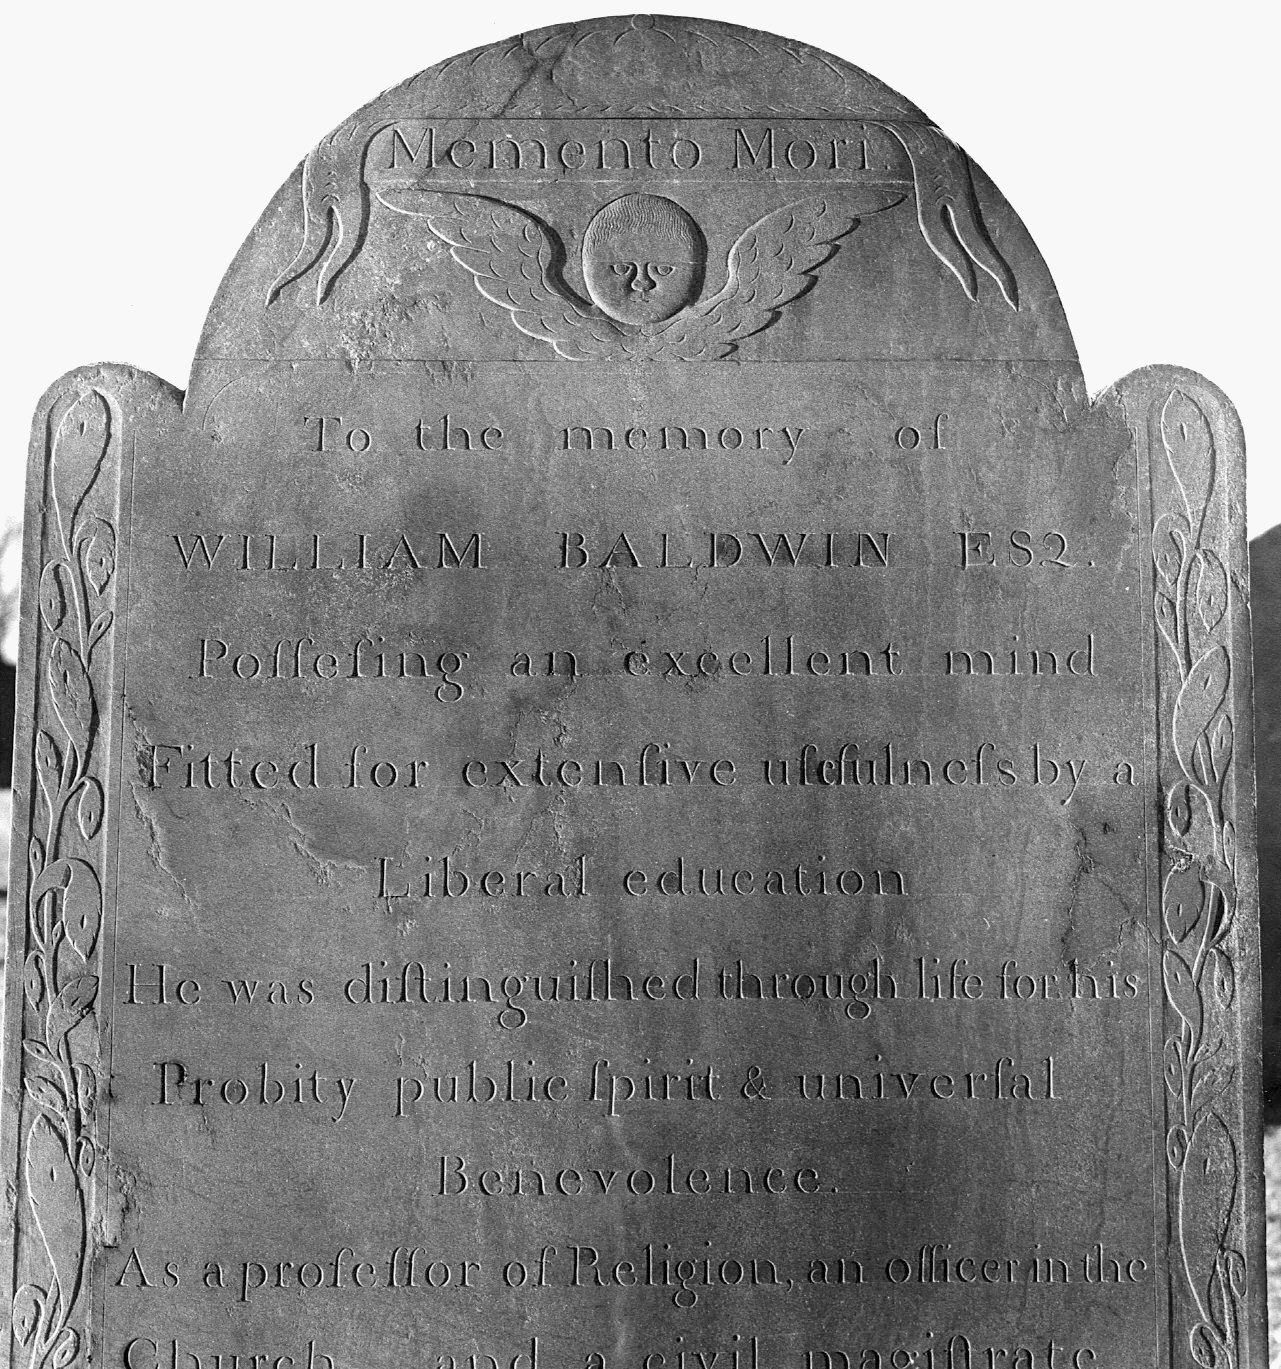 Memento Mori.
To the memory of
WILLIAM BALDWIN ESQ.
Poſſeſing an excellent mind
Fitted for extenſive uſefulneſs by a
Liberal education
He was diſtinguiſhed through life for his
Probity public ſpirit & univerſal
Benevolence.
As a profeſſor of Religion, an officer in the
Church and a civil magiſtrate